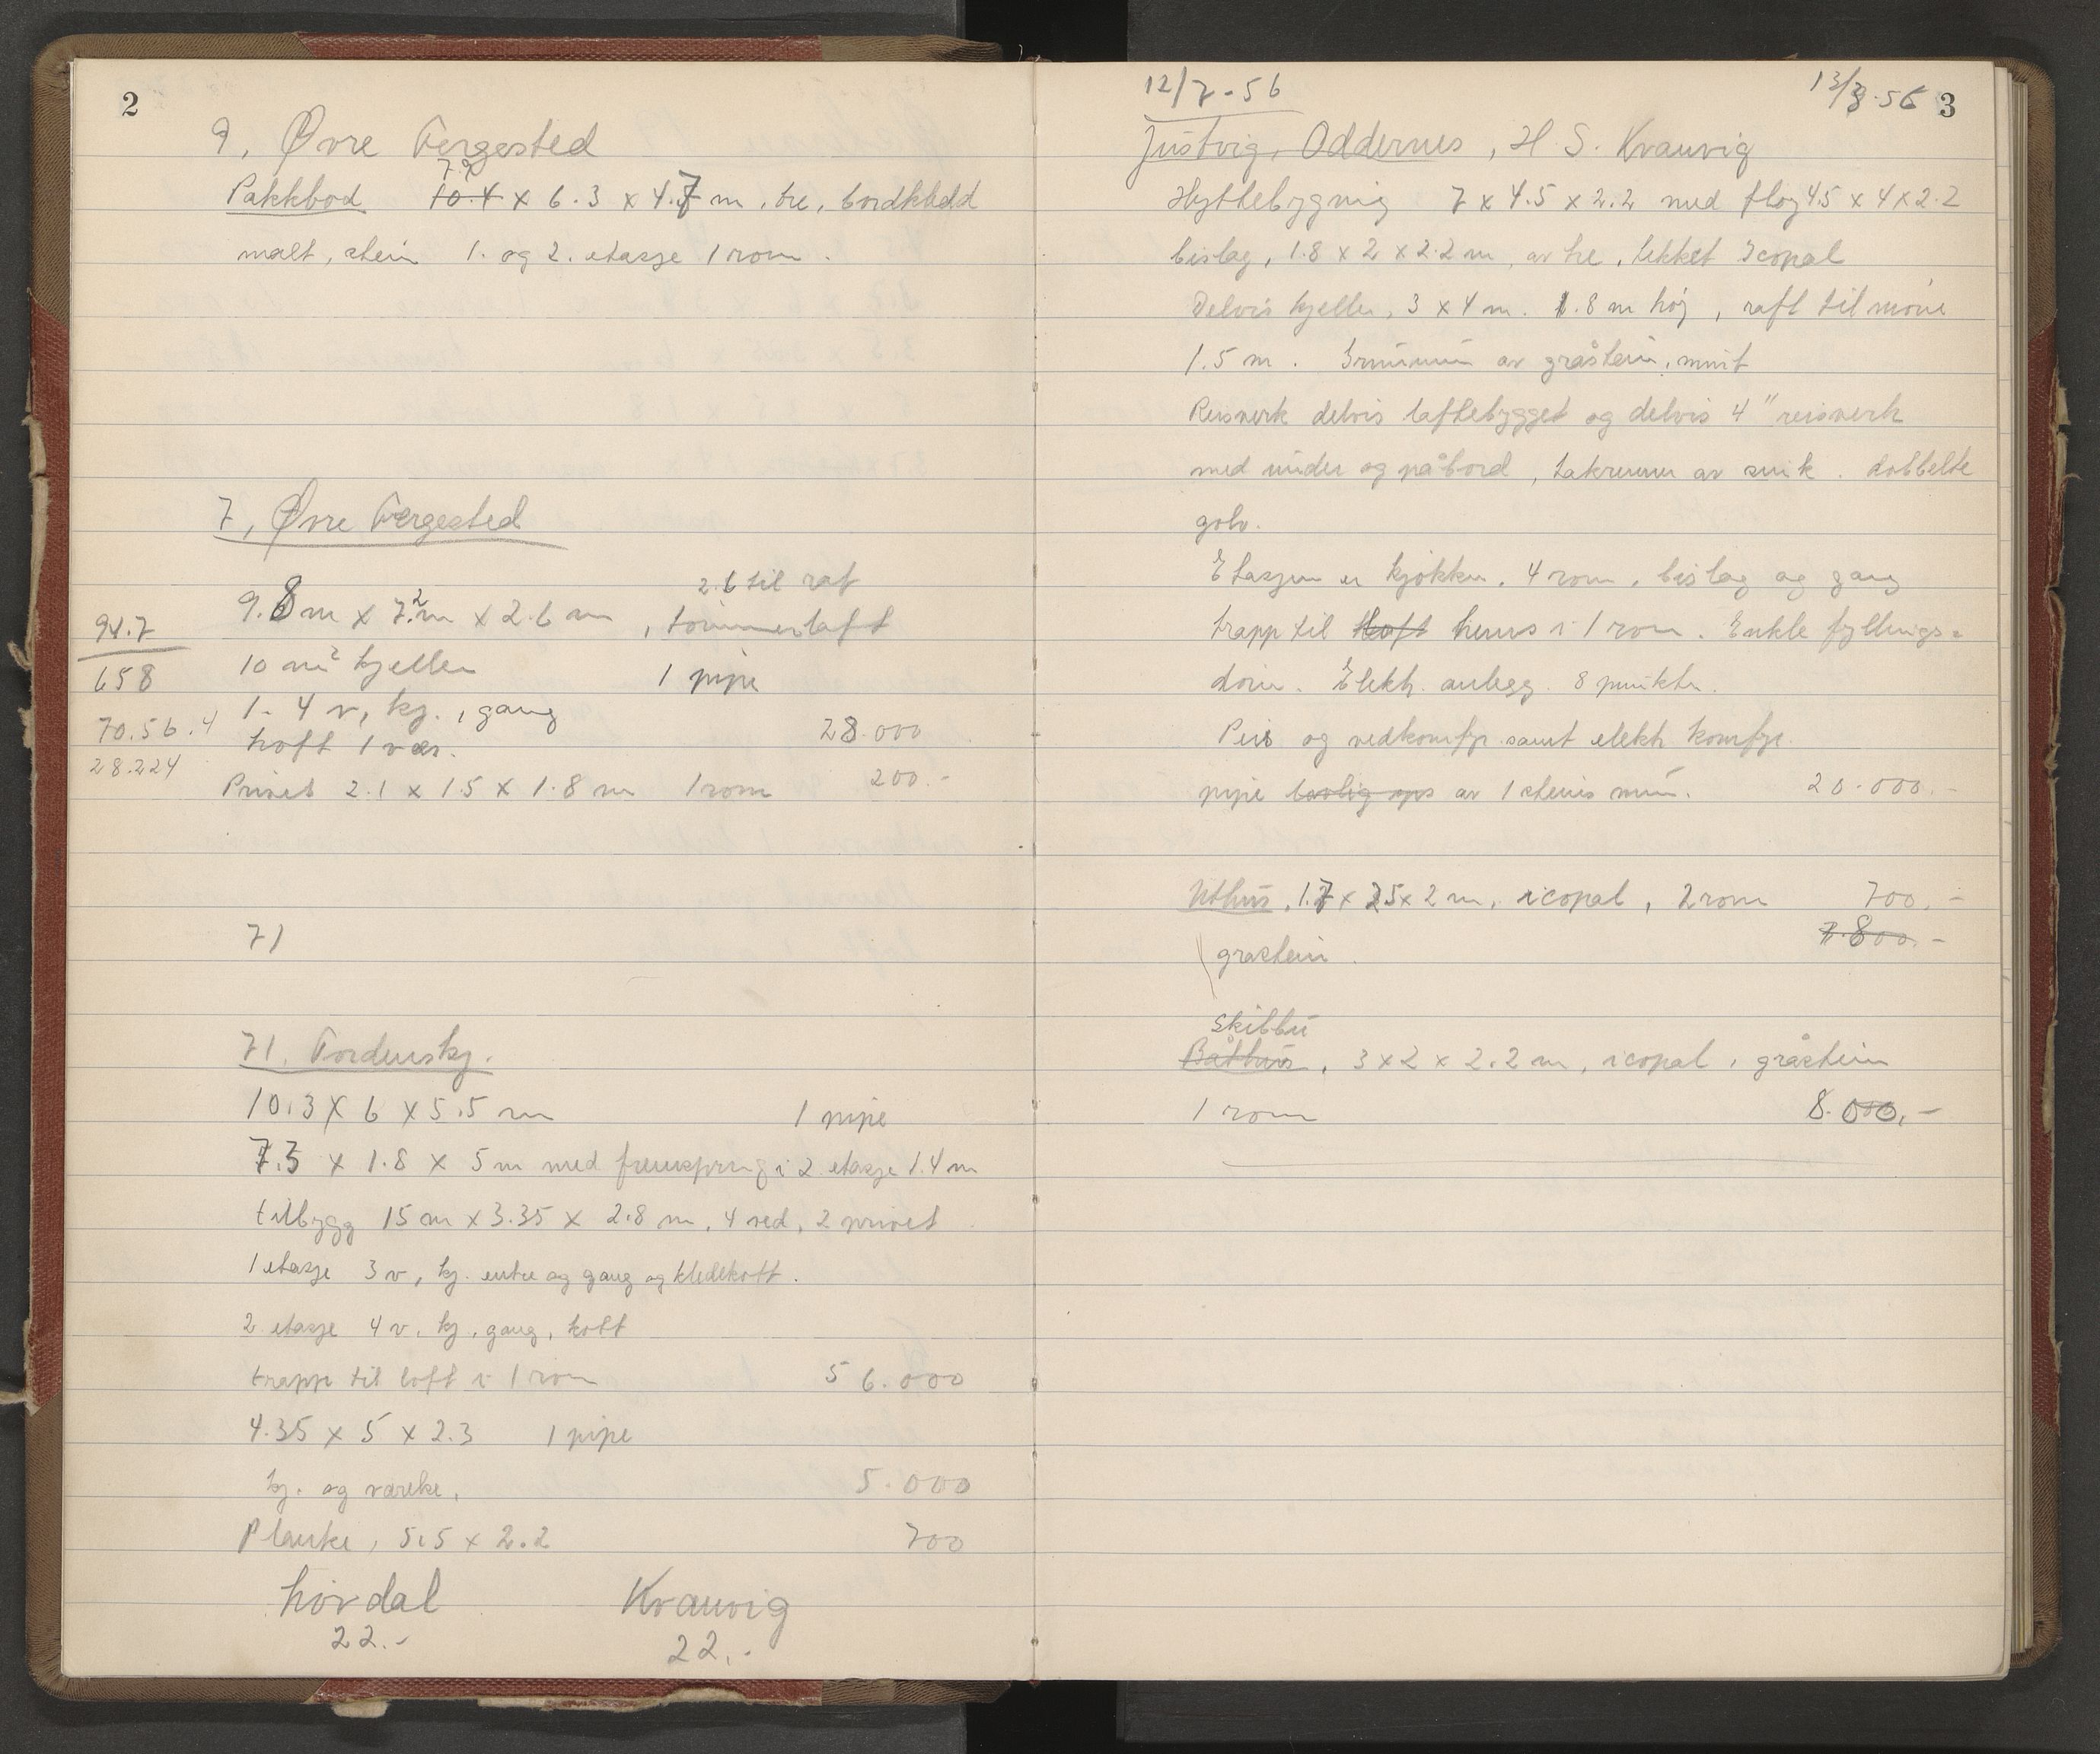 2
9, Øvre Fergested
7.9
Pakkbod 10.4 x 6.3 x 4.7 m, tre, bordkledd
malt, stein 1. og 2. etasje 1 rom.
7, Øvre Fergested
2.6 til raf
9.8 m x 7.2 m x 2.6 m, tømmerlaft
94.7
10 m² kjeller 1 pipe
658
1. 4 v, kj., gang
70.56.4
loft 1 vær. 28.000
28.224
Privet 2.1 x 1.5 x 1.8 m 1 rom 200.-
71
71. Tordenskj.
10.3 x 6 x 5.5 m 1 pipe
7.5 x 1.8 x 5 m med fremspring i 2 etasje 1.4 m
tilbygg 15 m x 3.35 x 2.8 m, 4 ved, 2 privet
1 etasje 3 v, kj. entre og gang og kledekott.
2 etasje 4 v, kj, gang, kott
trapp til loft i 1 rom 56.000
4.35 x 5 x 2.3 1 pipe
kj. og værelse, 5.000
Planke, 5.5 x 2.2 700
Hovdal Kvanvig
22.- 22.-
12/7-56
13/8-56 3
Justvig, Oddernes, H. S. Kvanvig
Hyttebygning 7 x 4.5 x 2.2 med fløy 4.5 x 4 x 2.2
bislag, 1.8 x 2 x 2.2 m, av tre, tekket Icopal
Delvis kjeller, 3 x 4 m. 1.8 m høj, raft til møne
1.5 m. Grunnmur av gråstein, mint
Reisverk delvis laftebygget og delvis 4" reisverk
med under og påbord, takrenner av sink. dobbelte
golv.
Etasjen er kjøkken, 4 rom, bislag og gang
trapp til loft hems i 1 rom. Enkle fyllings=
dører. Elektr. anlegg. 8 punkter.
Peis og vedkomfyr samt elektr komfyr.
pipe av 1 steins mur. 20.000.-
Uthus, 1.7 x 2.5 x 2 m, icopal, 2 rom 700.-
7.800.-
gråstein.
Skibbu
Båthus, 3 x 2 x 2.2 m, icopal, gråstein
1 rom 8.000,-